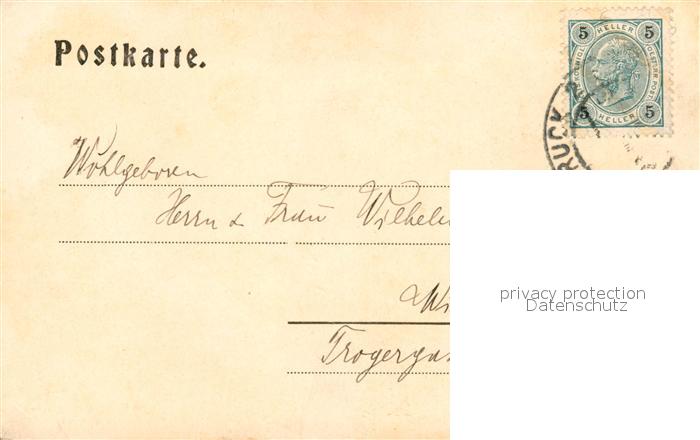 Postkarte.
5 HELLER 5
5 HELLER 5
RUCK 2
Wohlgeboren
Herrn & Frau Wilhelm
Wi
Trogergas
privacy protection
Datenschutz